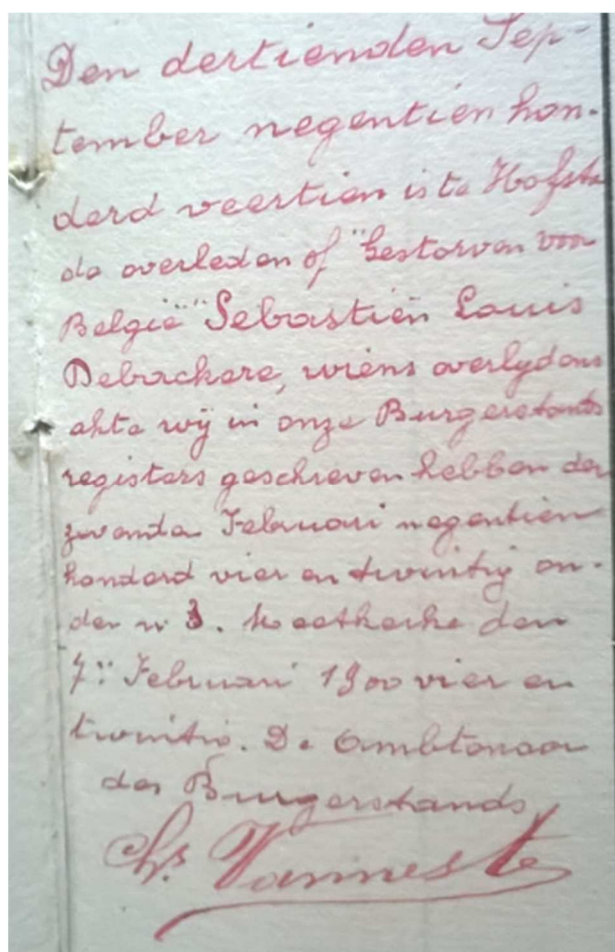 Den dertienden Sep-
tember negentien hon-
derd veertien is te Hofsta
de overleden of "Gestorven voor
België" Sebastien Louis
Debackere, wiens overlydens
akte wij in onze Burgerstands
registers geschreven hebben den
zevenden Februari negentien
honderd vier en twintig on-
der n 3. Koetkerke den
7: Februari 1900 vier en
twintig. De Ambtenaar
des Burgerstands,
Ch.s Vanneste